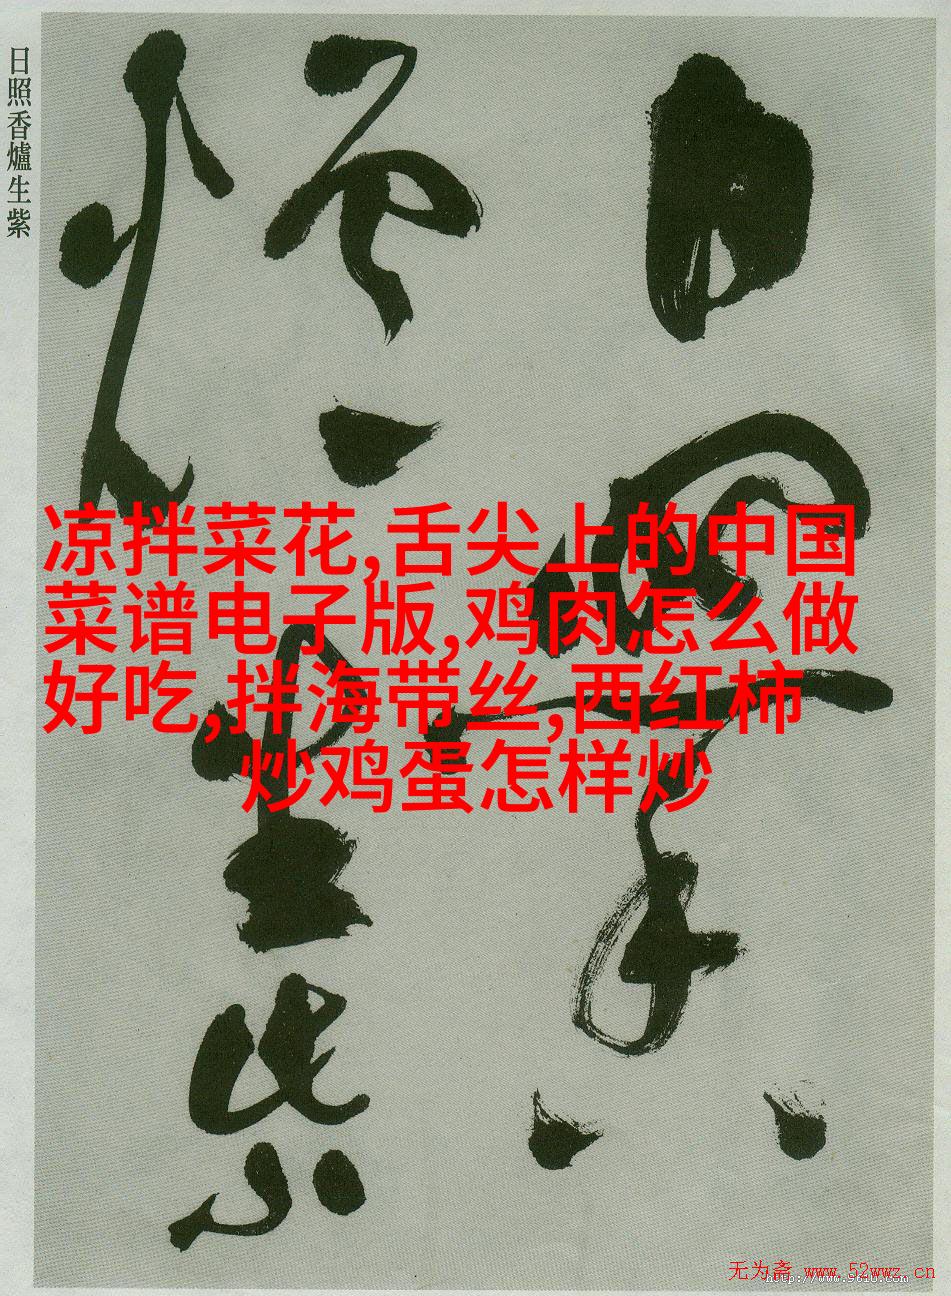 日照香爐生紫
日照香
爐生紫
凉拌菜花,舌尖上的中国
菜谱电子版,鸡肉怎么做
好吃,拌海带丝,西红柿
炒鸡蛋怎样炒
无为斋 www.52wwz.cn
http://www.9610.com